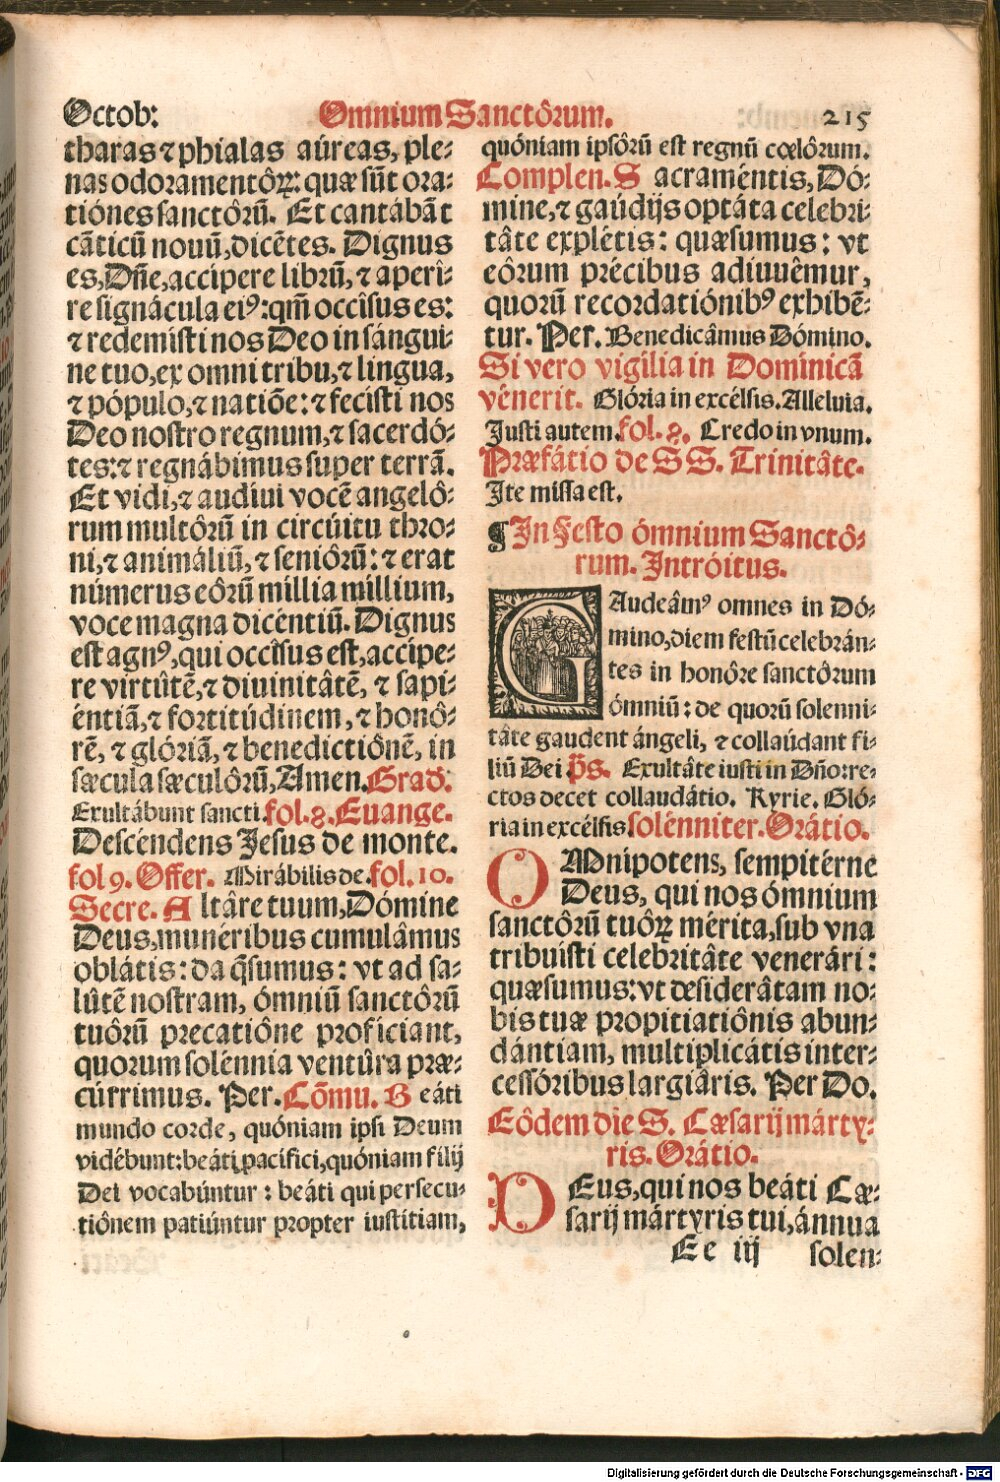 Octob: Omnium Sanctôrum. 215
tharas ⁊ phialas aúreas, ple⸗
nas odoramentôꝝ: quæ sūt ora⸗
tiónes sanctôrū. Et cantábāt
cāticū nouū, dicētes. Dignus
es, Dñe, accipere librū, ⁊ aperî⸗
re signácula eiꝰ: qm̄ occîsus es:
⁊ redemisti nos Deo in sángui⸗
ne tuo, ex omni tribu, ⁊ lingua,
⁊ pópulo, ⁊ natiōe: ⁊ fecisti nos
Deo nostro regnum, ⁊ sacerdó⸗
tes: ⁊ regnábimus super terrā.
Et vidi, ⁊ audíui vocē angelô⸗
rum multôrū in circúitu thro⸗
ni, ⁊ animáliū, ⁊ seniôrū: ⁊ erat
númerus eôrū millia millium,
voce magna dicéntiū. Dignus
est agnꝰ, qui occîsus est, accípe⸗
re virtûtē, ⁊ diuinitâtē, ⁊ sapi⸗
éntiā, ⁊ fortitúdinem, ⁊ honô⸗
rē, ⁊ glóriā, ⁊ benedictiônē, in
sæcula sæculôrū, Amen. Grad:
Exultábunt sancti. fol. 8. Euange.
Descéndens Jesus de monte.
fol 9. Offer. Mirábilis de. fol. 10.
Secre. A ltâre tuum, Dómine
Deus, munéribus cumulâmus
oblátis: da q̄sumus: vt ad sa⸗
lûtē nostram, ómniū sanctôrū
tuôrū precatiône profíciant,
quorum solénnia ventûra præ⸗
cúrrimus. Per. Cōmu. B eáti
mundo corde, quóniam ipsi Deum
vidébunt: beáti pacífici, quóniam filij
Dei vocabúntur: beáti qui persecu⸗
tiônem patiúntur propter iustítiam,
quóniam ipsôrū est regnū cœlôrum.
Complen. S acraméntis, Dó⸗
mine, ⁊ gaúdijs optáta celebri⸗
tâte explétis: quæsumus: vt
eôrum précibus adiuuêmur,
quorū recordatiónibꝰ exhibē⸗
tur. Per. Benedicâmus Dómino.
Si vero vigília in Domínicā
vénerit. Glória in excélsis. Alleluia.
Justi autem. fol. 8. Credo in vnum.
Præfátio de SS. Trinitâte.
Ite missa est.
¶ In Festo ómnium Sanctô⸗
rum. Intróitus.
GAudeâmꝰ omnes in Dó⸗
mino, diem festū celebrán⸗
tes in honôre sanctôrum
ómniū: de quorū solenni⸗
tâte gaudent ángeli, ⁊ collaúdant fi⸗
liū Dei p̄s. Exultâte iusti in Dño: re⸗
ctos decet collaudátio. Kyrie. Gló⸗
ria in excélsis solénniter. Orátio.
OMnípotens, sempitérne
Deus, qui nos ómnium
sanctôrū tuôꝝ mérita, sub vna
tribuísti celebritâte venerári:
quæsumus: vt desiderâtam no⸗
bis tuæ propitiatiônis abun⸗
dántiam, multiplicátis inter⸗
cessóribus largiâris. Per Do.
Eôdem die S. Cæsarij márty⸗
ris. Orátio.
DEus, qui nos beáti Cæ⸗
sarij mártyris tui, ánnua
Ee iij solen⸗
Digitalisierung gefördert durch die Deutsche Forschungsgemeinschaft - DFG